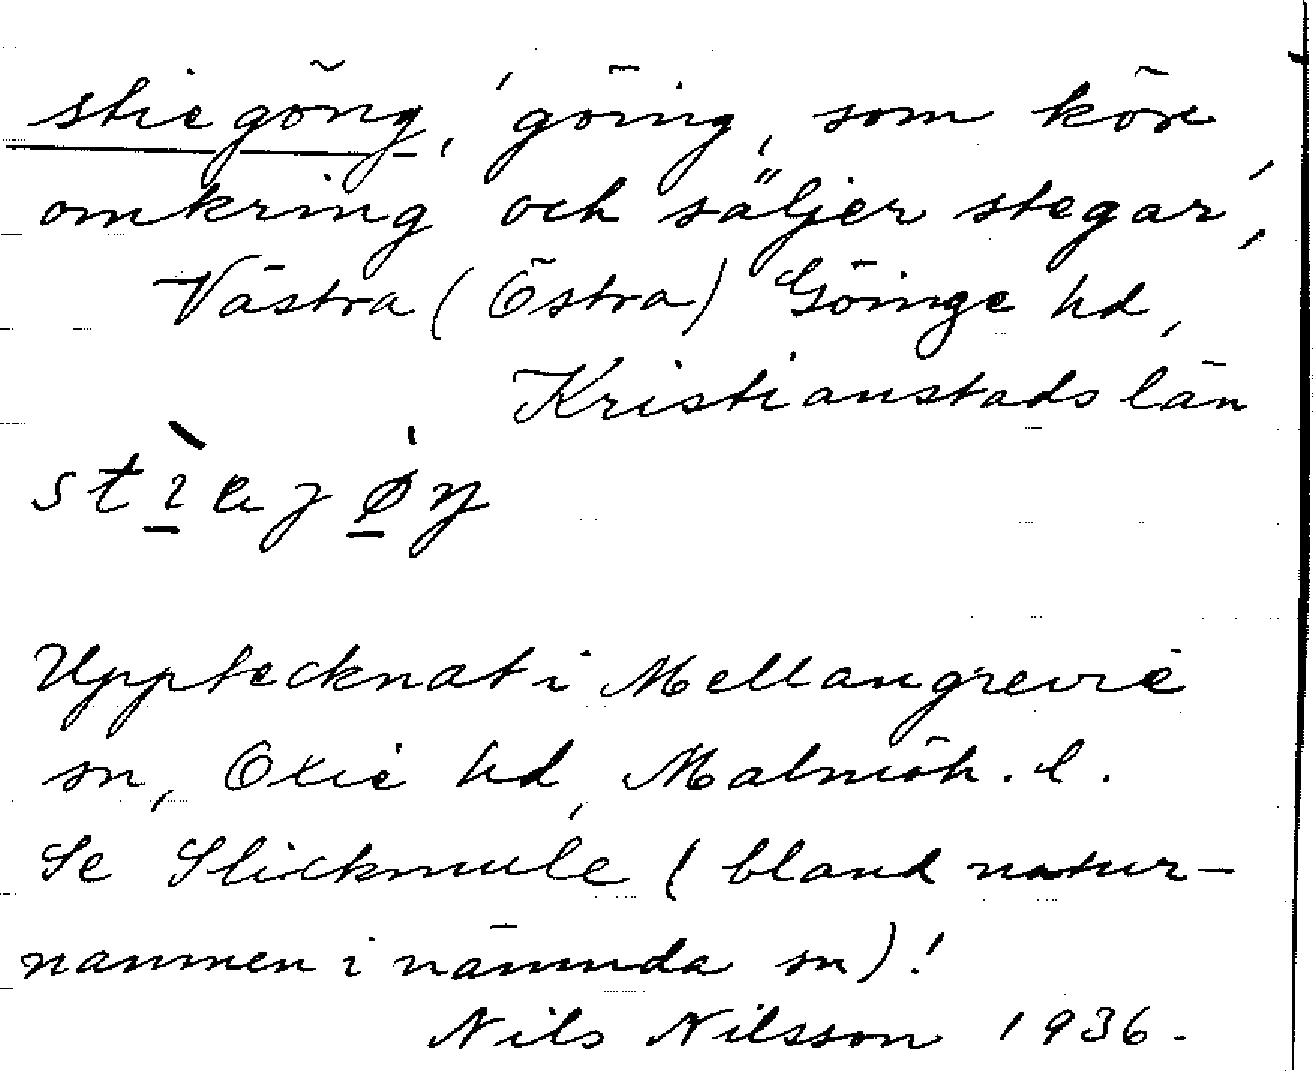 stiegöng, 'göing, som kör
omkring och säljer stegar',
Västra (Östra) Göinge hd,
Kristianstads län
Upptecknat i Mellangrevie
sn, Oxie hd, Malmöh. l.
Se Slickmule (bland natur-
namnen i nämnda sn)!
Nils Nilsson 1936.